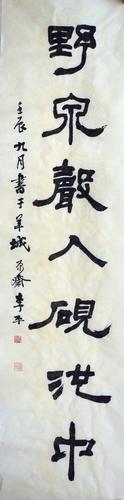 野泉聲入硯池中
壬辰九月書于羊城
齋李平